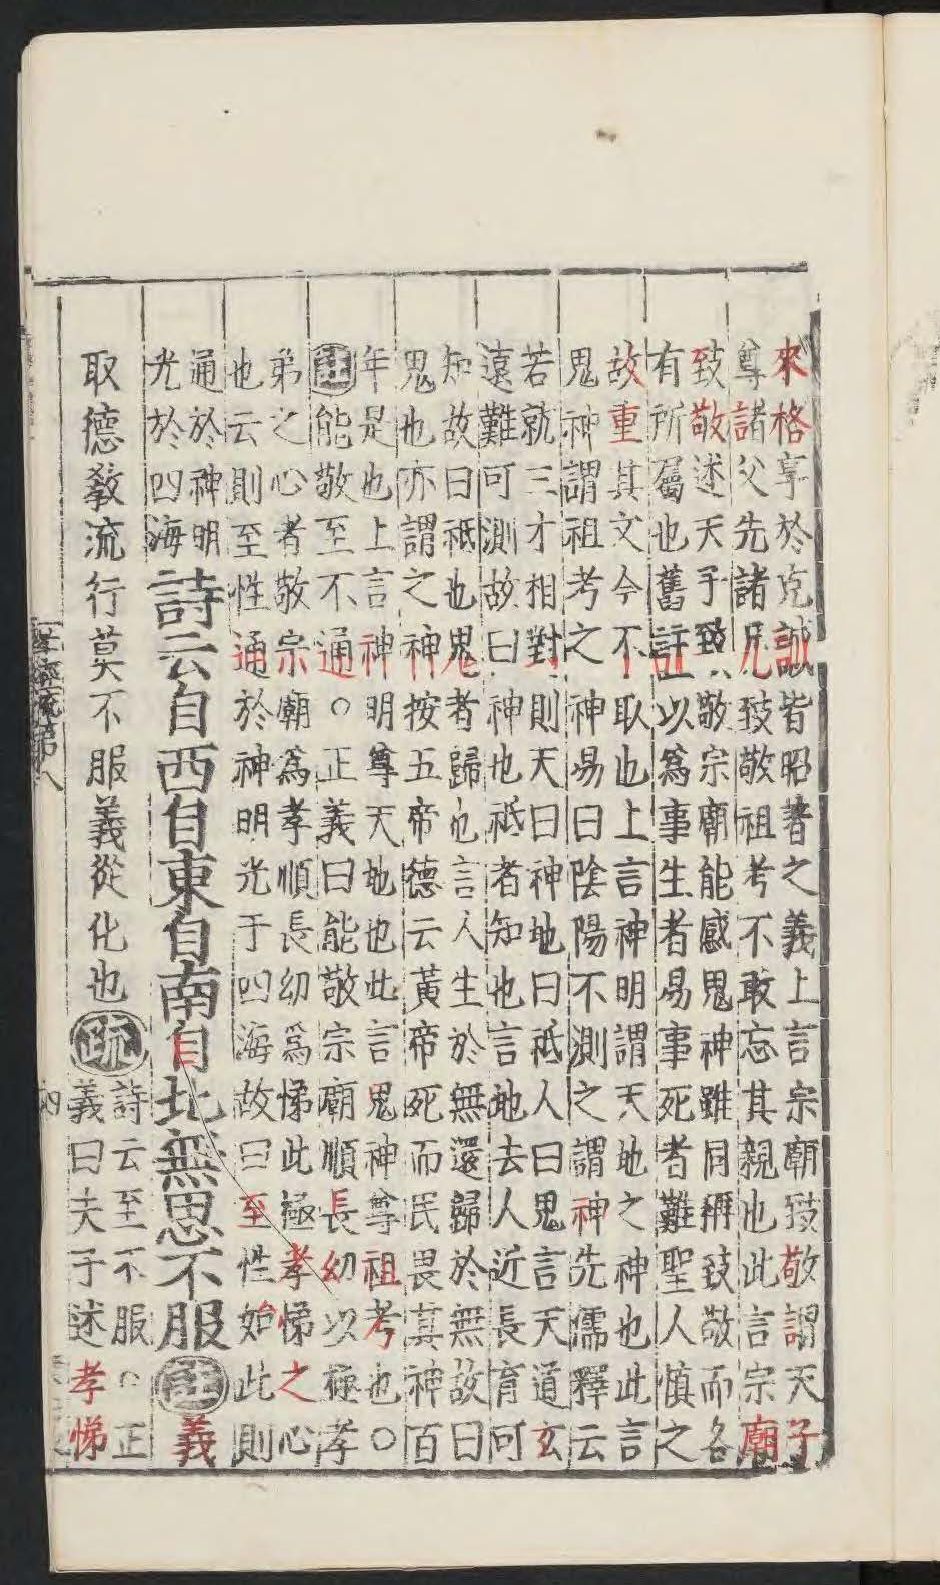 來格享於克誠皆昭著之義上言宗廟致敬謂天子
尊諸父先諸兄致敬祖考不敢忘其親也此言宗廟
致敬述天子致敬宗廟能感鬼神雖同稱致敬而各
有所屬也舊註以為事生者易事死者難聖人慎之
故重其文今不取也上言神明謂天地之神也此言
鬼神謂祖考之神易曰陰陽不測之謂神先儒釋云
若就三才相對則天曰神地曰祗人曰鬼言天道玄
遠難可測故曰神也祗者知也言地去人近長育可
知故曰祗也鬼者歸也言人生於無還歸於無故曰
鬼也亦謂之神按五帝德云黃帝死而民畏其神百
年是也上言神明尊天地也此言鬼神尊祖考也○
註能敬至不通○正義曰能敬宗廟順長幼以極孝
弟之心者敬宗廟為孝順長幼為悌此極孝悌之心
也云則至性通於神明光于四海故曰至性始此則
通於神明
光於四海
詩云自西自東自南自北無思不服註義
取德教流行莫不服義從化也疏
詩云至不服○正
義曰夫子述孝悌
孝經疏第八